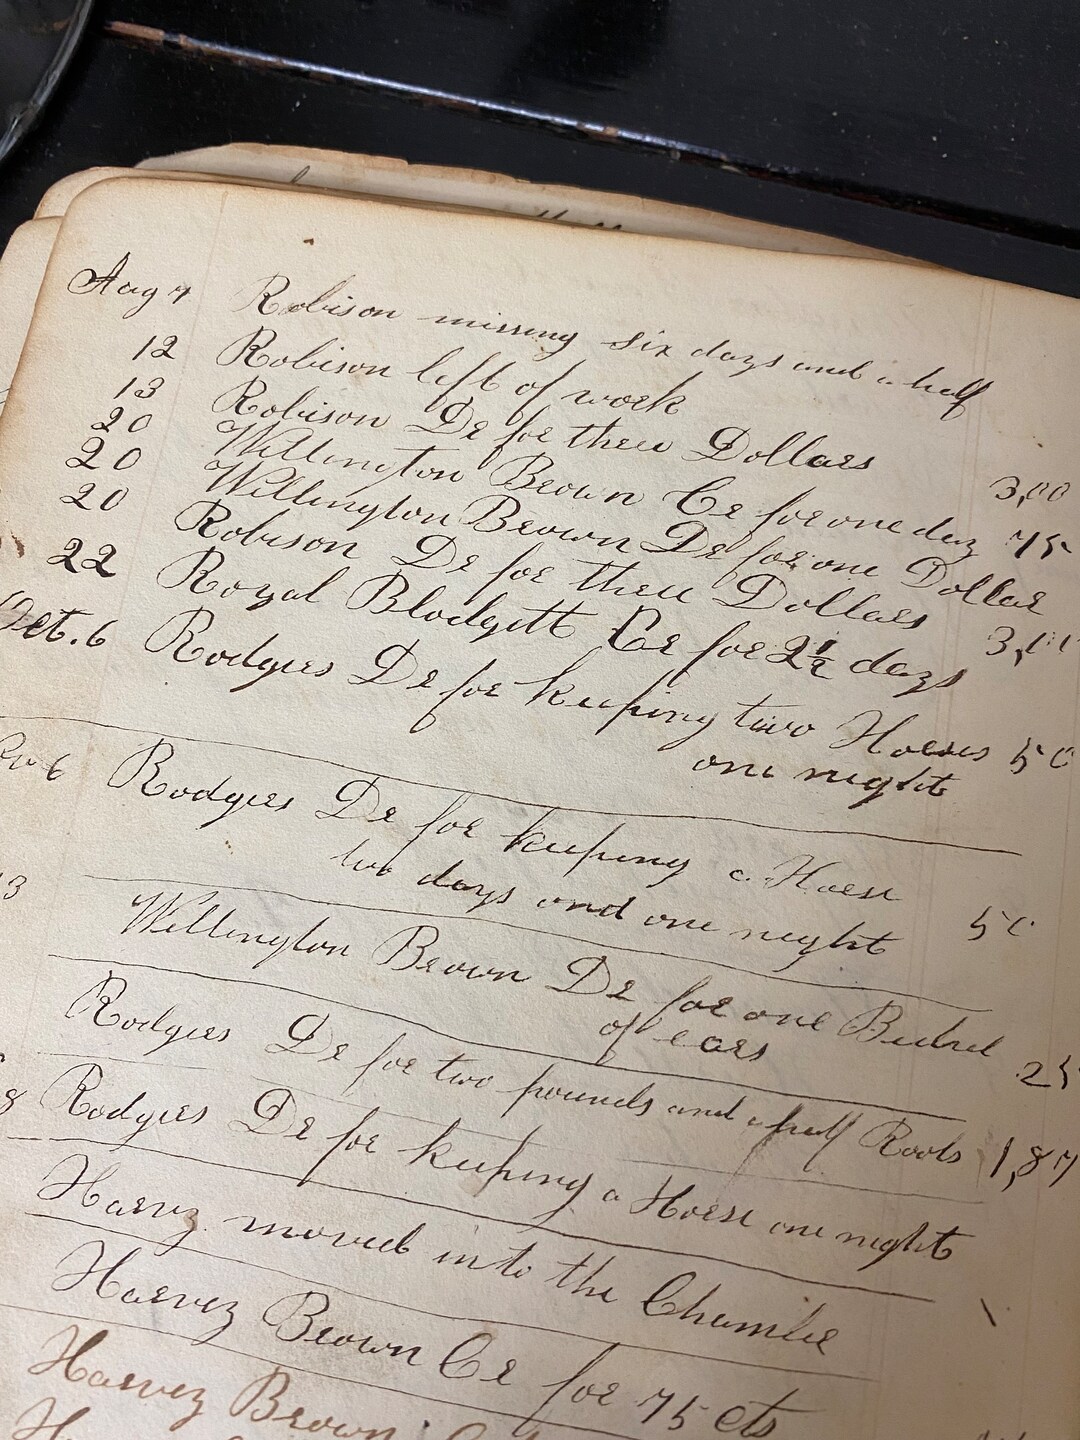 Aug 7 Robison missing six days and a half
12 Robison left of work
13 Robison Dr for three Dollars 3,00
20 Willington Brown Cr for one day 75
20 Willington Brown Dr for one Dollar
20 Robison Dr for three Dollars 3,00
22 Royal Blodgett Cr for 2 1/2 days
Oct. 6 Rodgers Dr for keeping two Horses 50
one night
6 Rodgers Dr for keeping a Horse
two days and one night 50
3 Willington Brown Dr for one Bushel
of ears 25
Rodgers Dr for two pounds and a half Roots 1,87
8 Rodgers Dr for keeping a Horse one night
Harvey moved into the Chamber
Harvey Brown Cr for 75 cts
Harvey Brown